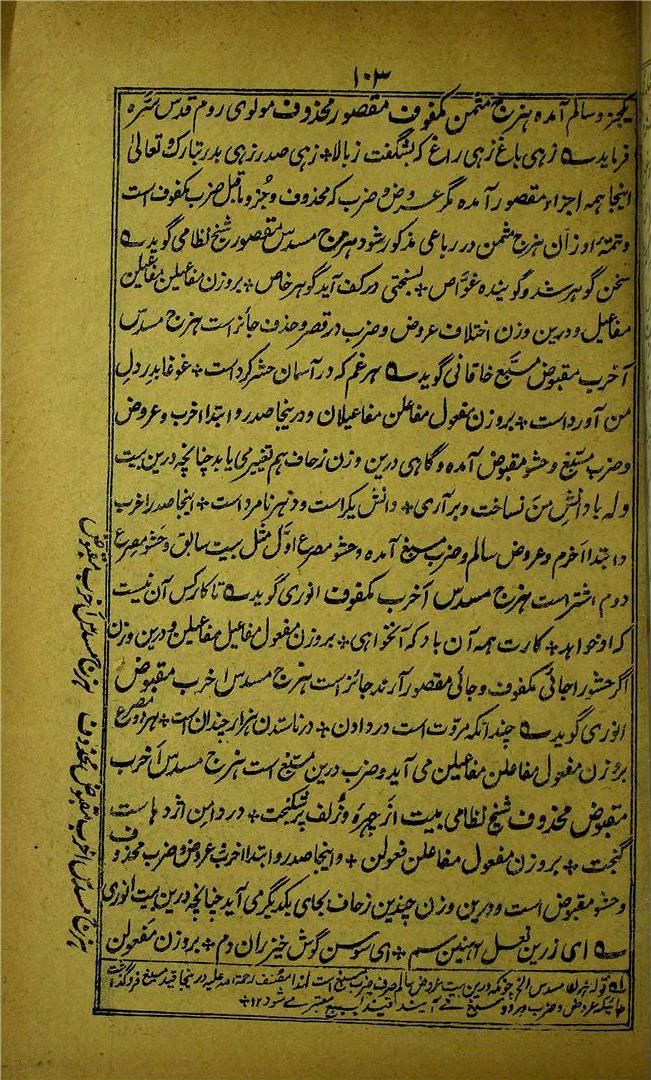 ۱۰۳
یکجزو سالم آمده هزج مثمن مکفوف مقصور محذوف مولوی روم قدس سره
فرماید زهی باغ زهی راغ که بشگفت ز بالا + زهی صدر زهی بدر تبارک و تعالیٰ
اینجا همه اجزاء مقصور آمده مگر عروض و ضرب که محذوف و جزو ماقبل ضرب مکفوف است
و تتمهٔ اوزان هزج مثمن در رباعی مذکور شود هزج مسدس مقصور شیخ نظامی گوید
سخن گوهر شد و گوینده غوّاص + بسختی در کف آید گوهر خاص + بروزن مفاعیلن مفاعیلن
مفاعیل و درین وزن اختلاف عروض و ضرب در قصر و حذف جائز است هزج مسدس
آخرب مقبوض مسبّغ خاقانی گوید هر غم که در آسمان حشر کرداست + غوغا بدر دلِ
من آورداست + بروزن مفعول مفاعلن مفاعیلان و درینجا صدر و ابتدا اخرب و عروض
و ضرب مسبّغ و حشو مقبوض آمده و گاهی درین وزن زحاف هم تغییر می یابد چنانچه درین بیت
وله با دانشِ من نساخت و برآری + دانش یکراست و نهر نامرد است + اینجا صدر اخرب
و ابتدا اخرم و عروض سالم و ضرب مسبغ آمده و حشو مصرع اوّل مثل بیت سابق و حشو مصرع
دوم اشتر است هزج مسدس آخرب مکفوف انوری گوید تا کار کس آن نیست
که او خواهد + کارت همه آن باد که آنخواهی + بروزن مفعول مفاعیل مفاعیلن و درین وزن
اگر حشو را جائی مکفوف و جائی مقصور آرند جائز است هزج مسدس اخرب مقبوض
انوری گوید چندانکه مروّت است در دادن + در ناستدن هزار چندان است + هر دو مصرع
بروزن مفعول مفاعلن مفاعیلن می آید و ضرب درین مسبّغ است هزج مسدس آخرب
مقبوض محذوف شیخ نظامی بیت از چهره و زُلف پر شکنجت + در دامن اژدهاست
گنجت + بروزن مفعول مفاعلن فعولن + و اینجا صدر و ابتدا اخرب و عروض و ضرب محذوف
و حشو مقبوض است و درین وزن چندین زحاف بجای یکدیگر می آید چنانچه درین بیت انوری
ای زرین نعل آهنین سم + ای سوسن گوش خیزران دم + بروزن مفعولن
قوله هزج مسدس الخ چونکه درین بیت عروض سالم و صرف ضرب مسبغ است لهذا مصنف رحمة الله علیه درینجا قید مسبغ فروگذاشت
جائیکه عروض و ضرب هر دو مسبغ می آیند قید مسبغ معتبر می شود ۱۲ +
هزج مسدس اخرب مقبوض
هزج مسدس اخرب مقبوض محذوف